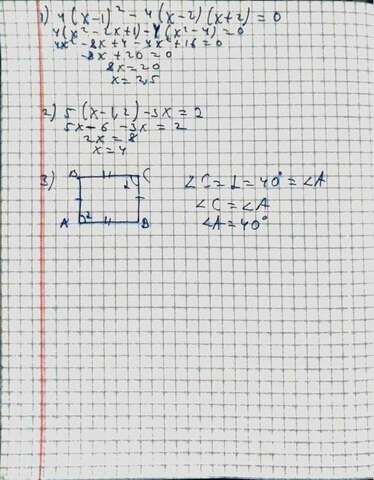 1) 4(x-1)² - 4(x-2)(x+2) = 0
4(x² - 2x + 1) - 4(x² - 4) = 0
4x² - 8x + 4 - 4x² + 16 = 0
-8x + 20 = 0
8x = 20
x = 2,5
2) 5(x-1,2) - 3x = 2
5x - 6 - 3x = 2
2x = 8
x = 4
3) D C
A 2 B
∠C = 1 = 40° = ∠A
∠C = ∠A
∠A = 40°